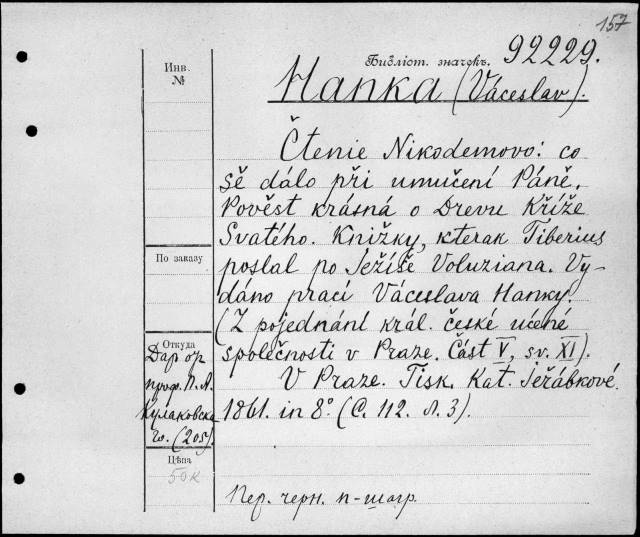 157
Библіот. значекъ. 92229.
Инв.
№
Hanka (Váceslav).
Čtenie Nikodemovo: co
sě dálo při umučení Páně.
Pověst krásná o Drevu Kříže
Svatého. Knižky, kterak Tiberius
poslal po Ježíše Voluziana. Vy-
dáno prací Váceslava Hanky.
(Z pojednání král. české učené
společnosti v Praze. Část V, sv. XI).
V Praze. Tisk. Kat. Jeřábkové.
1861. in 8° (С. 112. л. 3).
По заказу
Откуда
Дар ор
проф. П. А.
Кулаковска
го. (205).
Цѣна
50 к
Пер. черн. п-шагр.